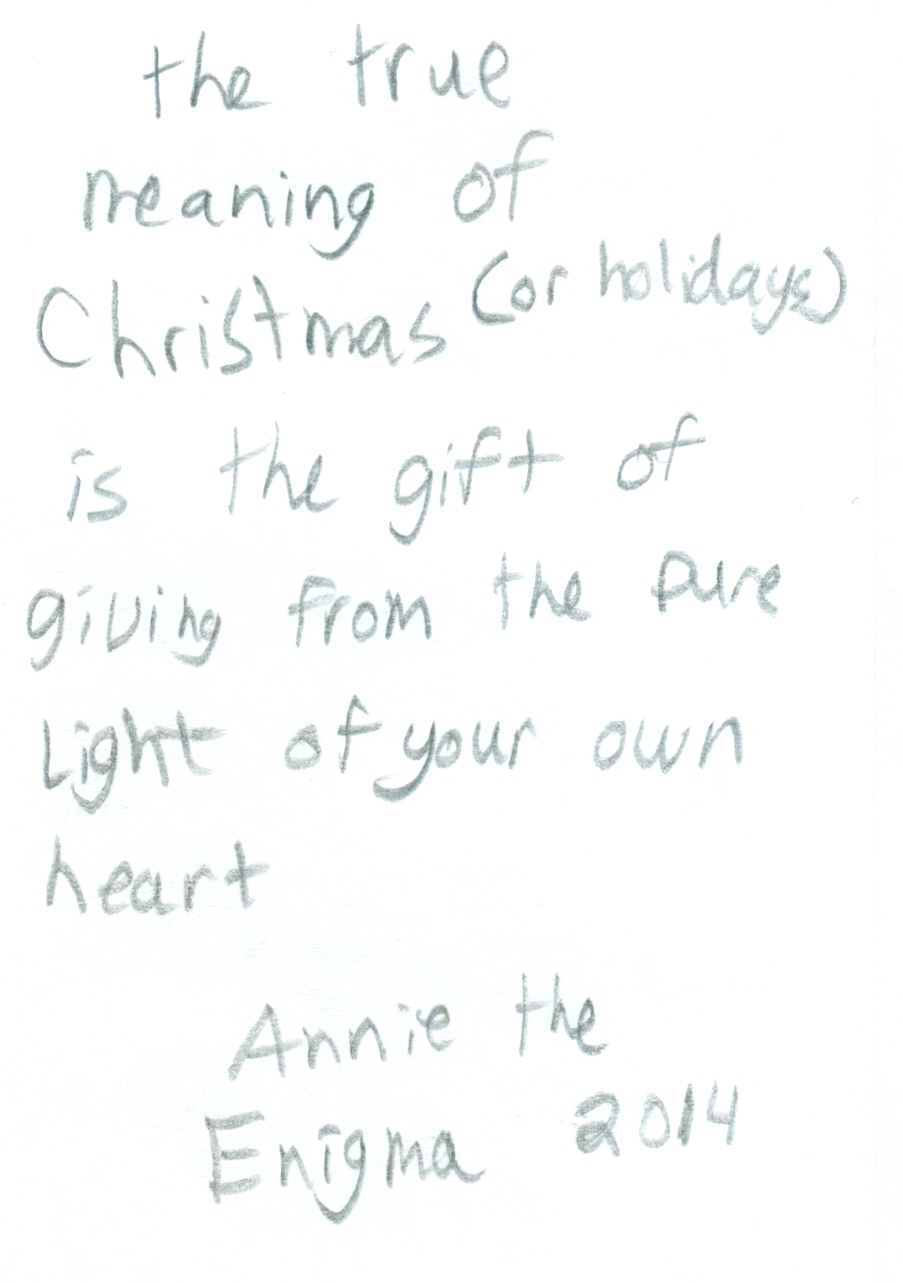 the true
meaning of
Christmas (or holidays)
is the gift of
giving from the pure
Light of your own
heart
Annie the
Enigma 2014